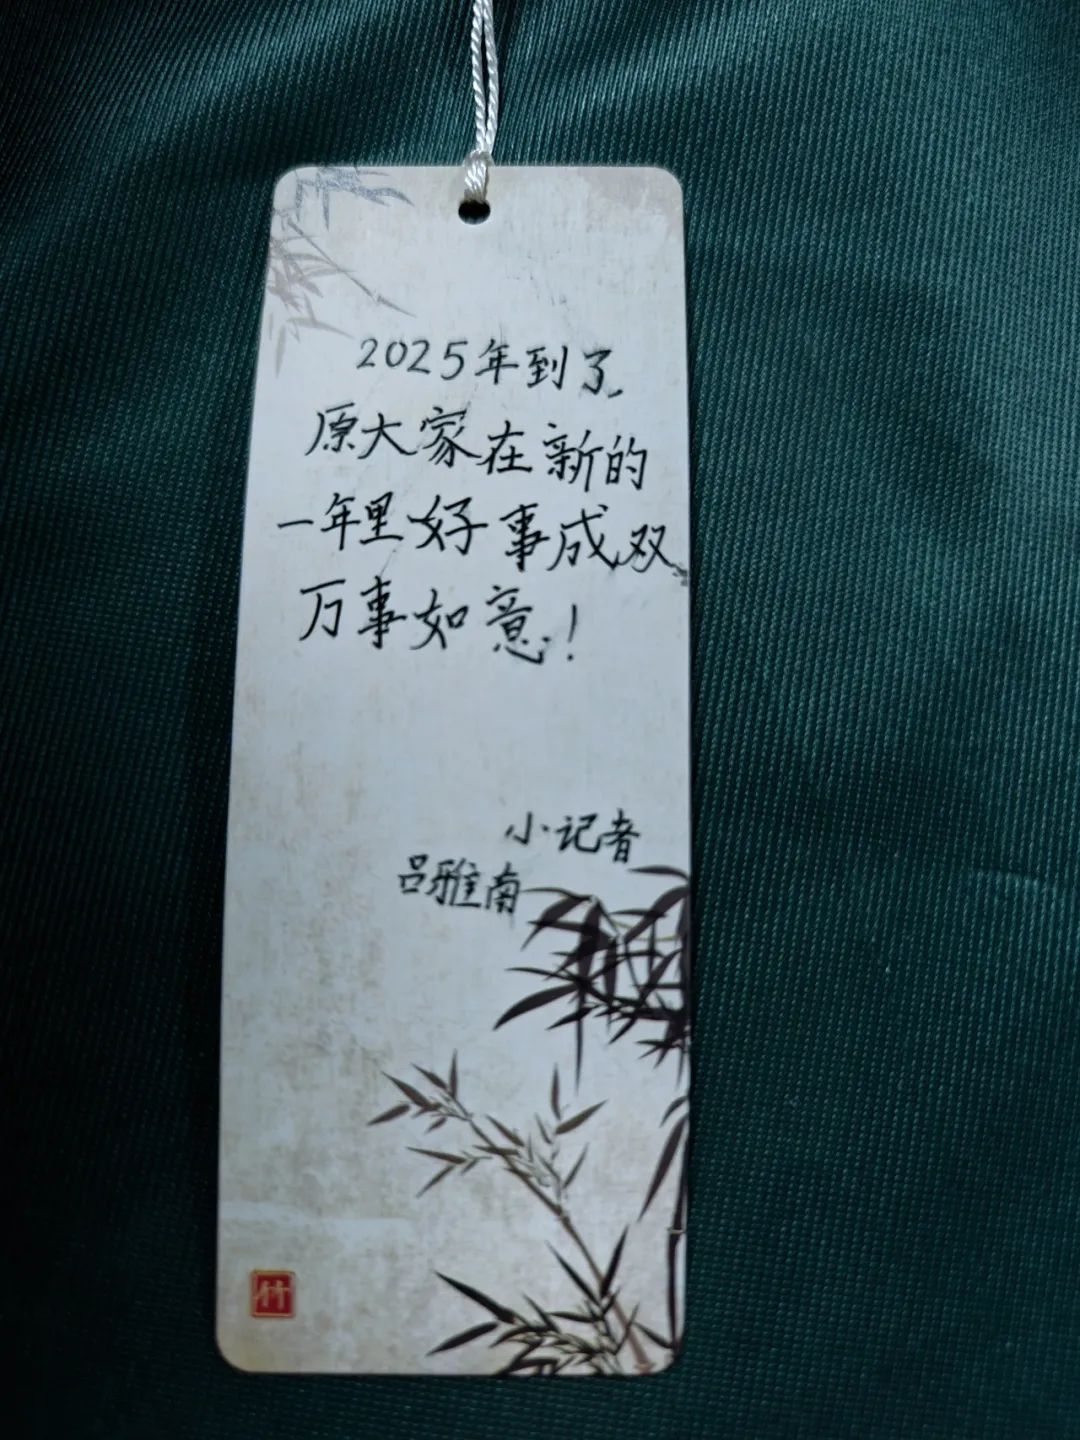 2025年到了
原大家在新的
一年里好事成双
万事如意！
小记者
吕雅南
竹